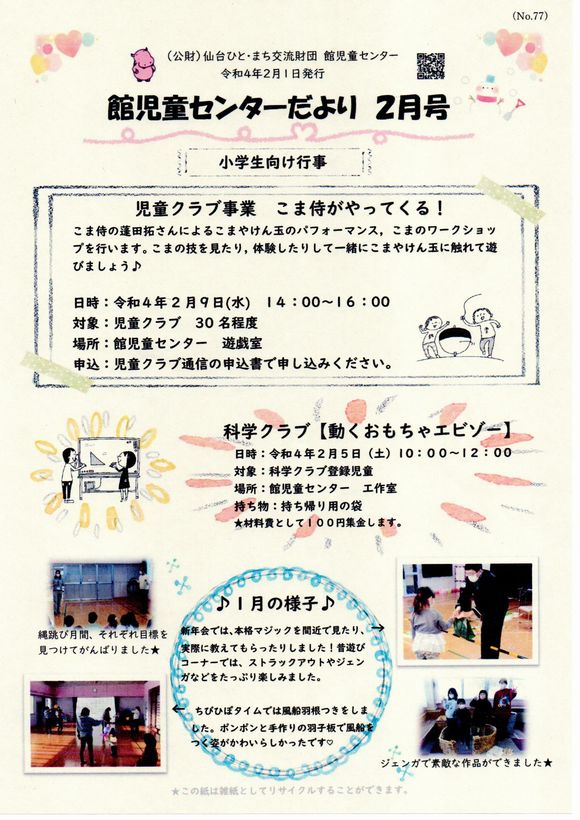 （No.77）
（公財）仙台ひと・まち交流財団 館児童センター
令和４年２月１日発行
館児童センターだより ２月号
小学生向け行事
児童クラブ事業 こま侍がやってくる！
こま侍の蓬田拓さんによるこまやけん玉のパフォーマンス，こまのワークショッ
プを行います。こまの技を見たり，体験したりして一緒にこまやけん玉に触れて遊
びましょう♪
日時：令和４年２月９日(水) １４：００～１６：００
対象：児童クラブ ３０名程度
場所：館児童センター 遊戯室
申込：児童クラブ通信の申込書で申し込みください。
科学クラブ【動くおもちゃエビゾー】
日時：令和４年２月５日（土）１０：００～１２：００
対象：科学クラブ登録児童
場所：館児童センター 工作室
持ち物：持ち帰り用の袋
★材料費として１００円集金します。
縄跳び月間、それぞれ目標を
見つけてがんばりました★
♪１月の様子♪
新年会では､本格マジックを間近で見たり、
実際に教えてもらったりしました！昔遊び
コーナーでは、ストラックアウトやジェン
ガなどをたっぷり楽しみました。
ちびひぽタイムでは風船羽根つきをしま
した。ポンポンと手作りの羽子板で風船を
つく姿がかわいらしかったです♡
ジェンガで素敵な作品ができました★
★この紙は雑紙としてリサイクルすることができます。